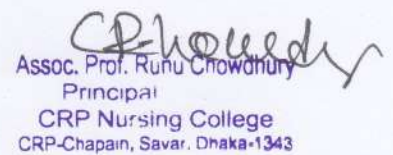 Assoc. Prof. Runu Chowdhury
Principal
CRP Nursing College
CRP-Chapain, Savar. Dhaka-1343